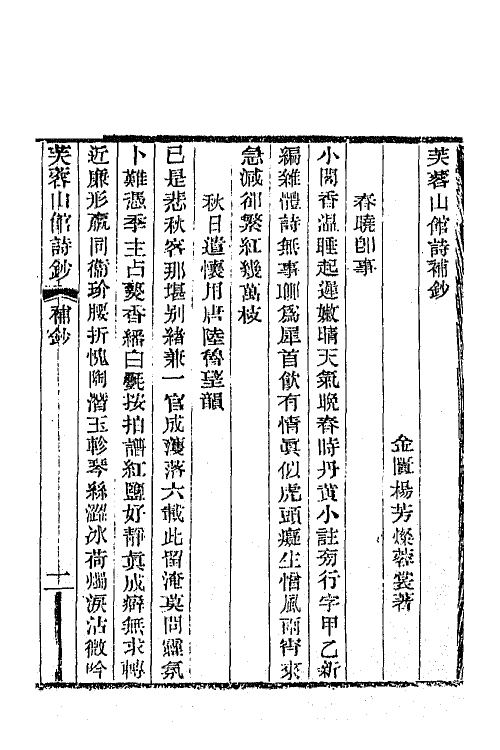 芙蓉山館詩補鈔
金匱楊芳燦蓉裳著
春曉卽事
小閣香溫睡起遲嫩晴天氣晚春時丹黃小註旁行字甲乙新
編雜體詩無事聊爲犀首飲有情眞似虎頭癡生憎風雨宵來
急減卻繁紅幾萬枝
秋日遣懷用唐陸魯望韻
已是悲秋客那堪別緒兼一官成濩落六載此留淹莫問靈氛
卜難憑季主占爇香繙白氎按拍譜紅鹽好靜眞成癖無求轉
近廉形羸同衞玠腰折愧陶潛玉軫琴絲澀冰荷燭淚沾微吟
芙蓉山館詩鈔 補鈔